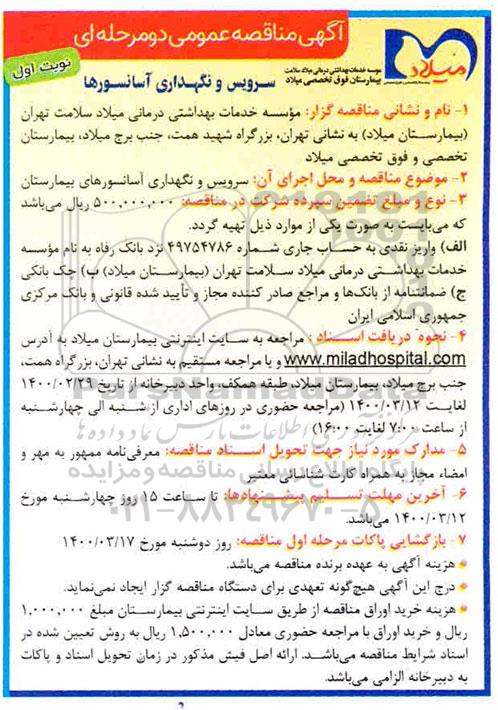 آگهی مناقصه عمومی دو مرحله ای
میلاد
موسسه خدمات بهداشتی درمانی میلاد سلامت
بیمارستان فوق تخصصی میلاد
نوبت اول
سرویس و نگهداری آسانسورها
۱- نام و نشانی مناقصه گزار: مؤسسه خدمات بهداشتی درمانی میلاد سلامت تهران
(بیمارستان میلاد) به نشانی تهران، بزرگراه شهید همت، جنب برج میلاد، بیمارستان
تخصصی و فوق تخصصی میلاد
۲- موضوع مناقصه و محل اجرای آن: سرویس و نگهداری آسانسورهای بیمارستان
۳- نوع و مبلغ تضمین سپرده شرکت در مناقصه: ۵۰۰,۰۰۰,۰۰۰ ریال می‌باشد
که می‌بایست به صورت یکی از موارد ذیل تهیه گردد.
الف) واریز نقدی به حساب جاری شماره ۴۹۷۵۴۷۸۶ نزد بانک رفاه به نام مؤسسه
خدمات بهداشتی درمانی میلاد سلامت تهران (بیمارستان میلاد) ب) چک بانکی
ج) ضمانتنامه از بانک‌ها و مراجع صادر کننده مجاز و تأیید شده قانونی و بانک مرکزی
جمهوری اسلامی ایران
۴- نحوه دریافت اسناد: مراجعه به سایت اینترنتی بیمارستان میلاد به آدرس
www.miladhospital.com و یا مراجعه مستقیم به نشانی تهران، بزرگراه همت،
جنب برج میلاد، بیمارستان میلاد، طبقه همکف، واحد دبیرخانه از تاریخ ۱۴۰۰/۰۲/۲۹
لغایت ۱۴۰۰/۰۳/۱۲ (مراجعه حضوری در روزهای اداری از شنبه الی چهارشنبه
از ساعت ۷:۰۰ لغایت ۱۶:۰۰)
۵- مدارک مورد نیاز جهت تحویل اسناد مناقصه: معرفی‌نامه ممهور به مهر و
امضاء مجاز به همراه کارت شناسائی معتبر
۶- آخرین مهلت تسلیم پیشنهادها: تا ساعت ۱۵ روز چهارشنبه مورخ
۱۴۰۰/۰۳/۱۲ می‌باشد.
۷- بازگشایی پاکات مرحله اول مناقصه: روز دوشنبه مورخ ۱۴۰۰/۰۳/۱۷
* هزینه آگهی به عهده برنده مناقصه می‌باشد.
* درج این آگهی هیچ‌گونه تعهدی برای دستگاه مناقصه گزار ایجاد نمی‌نماید.
* هزینه خرید اوراق مناقصه از طریق سایت اینترنتی بیمارستان مبلغ ۱,۰۰۰,۰۰۰
ریال و خرید اوراق با مراجعه حضوری معادل ۱,۵۰۰,۰۰۰ ریال به روش تعیین شده در
اسناد شرایط مناقصه می‌باشد. ارائه اصل فیش مذکور در زمان تحویل اسناد و پاکات
به دبیرخانه الزامی می‌باشد.
ParsNamadData
پایگاه اطلاع رسانی مناقصه و مزایده
۰۲۱-۸۸۳۴۹۶۷۰-۵